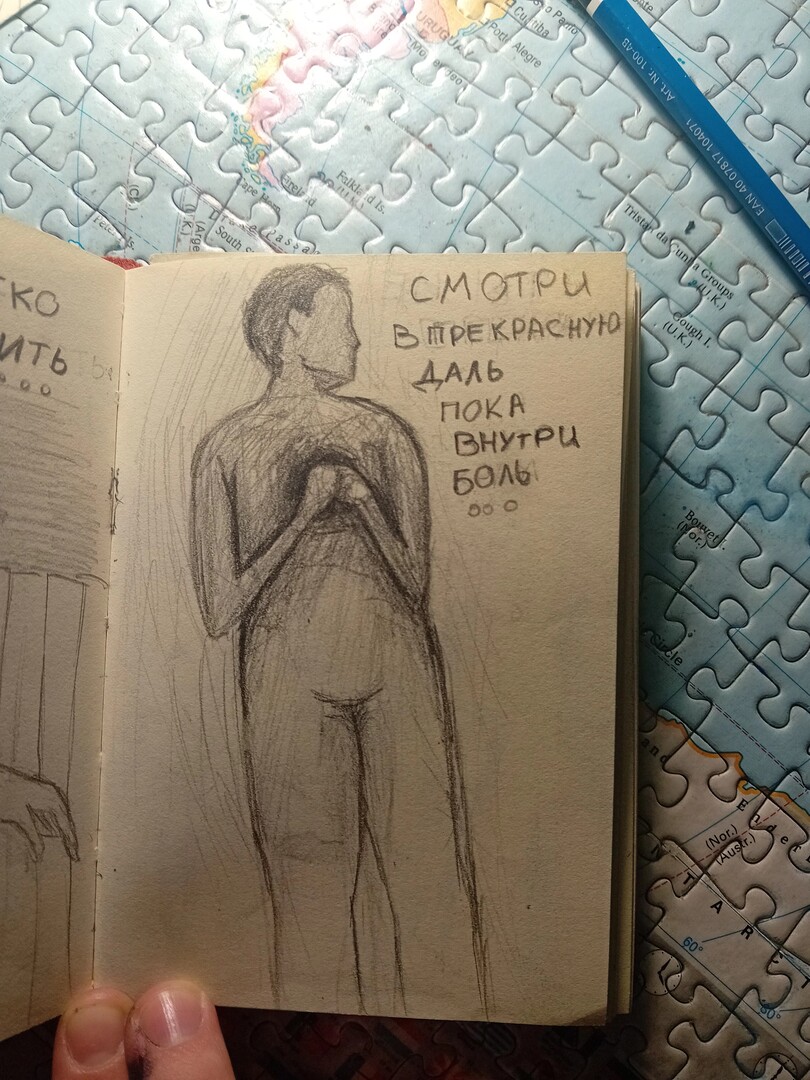 URUGUAY
Curitiba
Porto Alegre
Falkland Is.
(U.K.)
South
Tristan da Cunha Groups
(U.K.)
Gough I.
(U.K.)
Bouvet I.
(Nor.)
Circle
and
Ender
(Nor.)
(Austr.)
T A R C T
60°
Art. Nr. 100-49
EAN 40 07817 104071
ТКО
ИТЬ
...
СМОТРИ
В ПРЕКРАСНУЮ
ДАЛЬ
ПОКА
ВНУТРИ
БОЛЬ
...